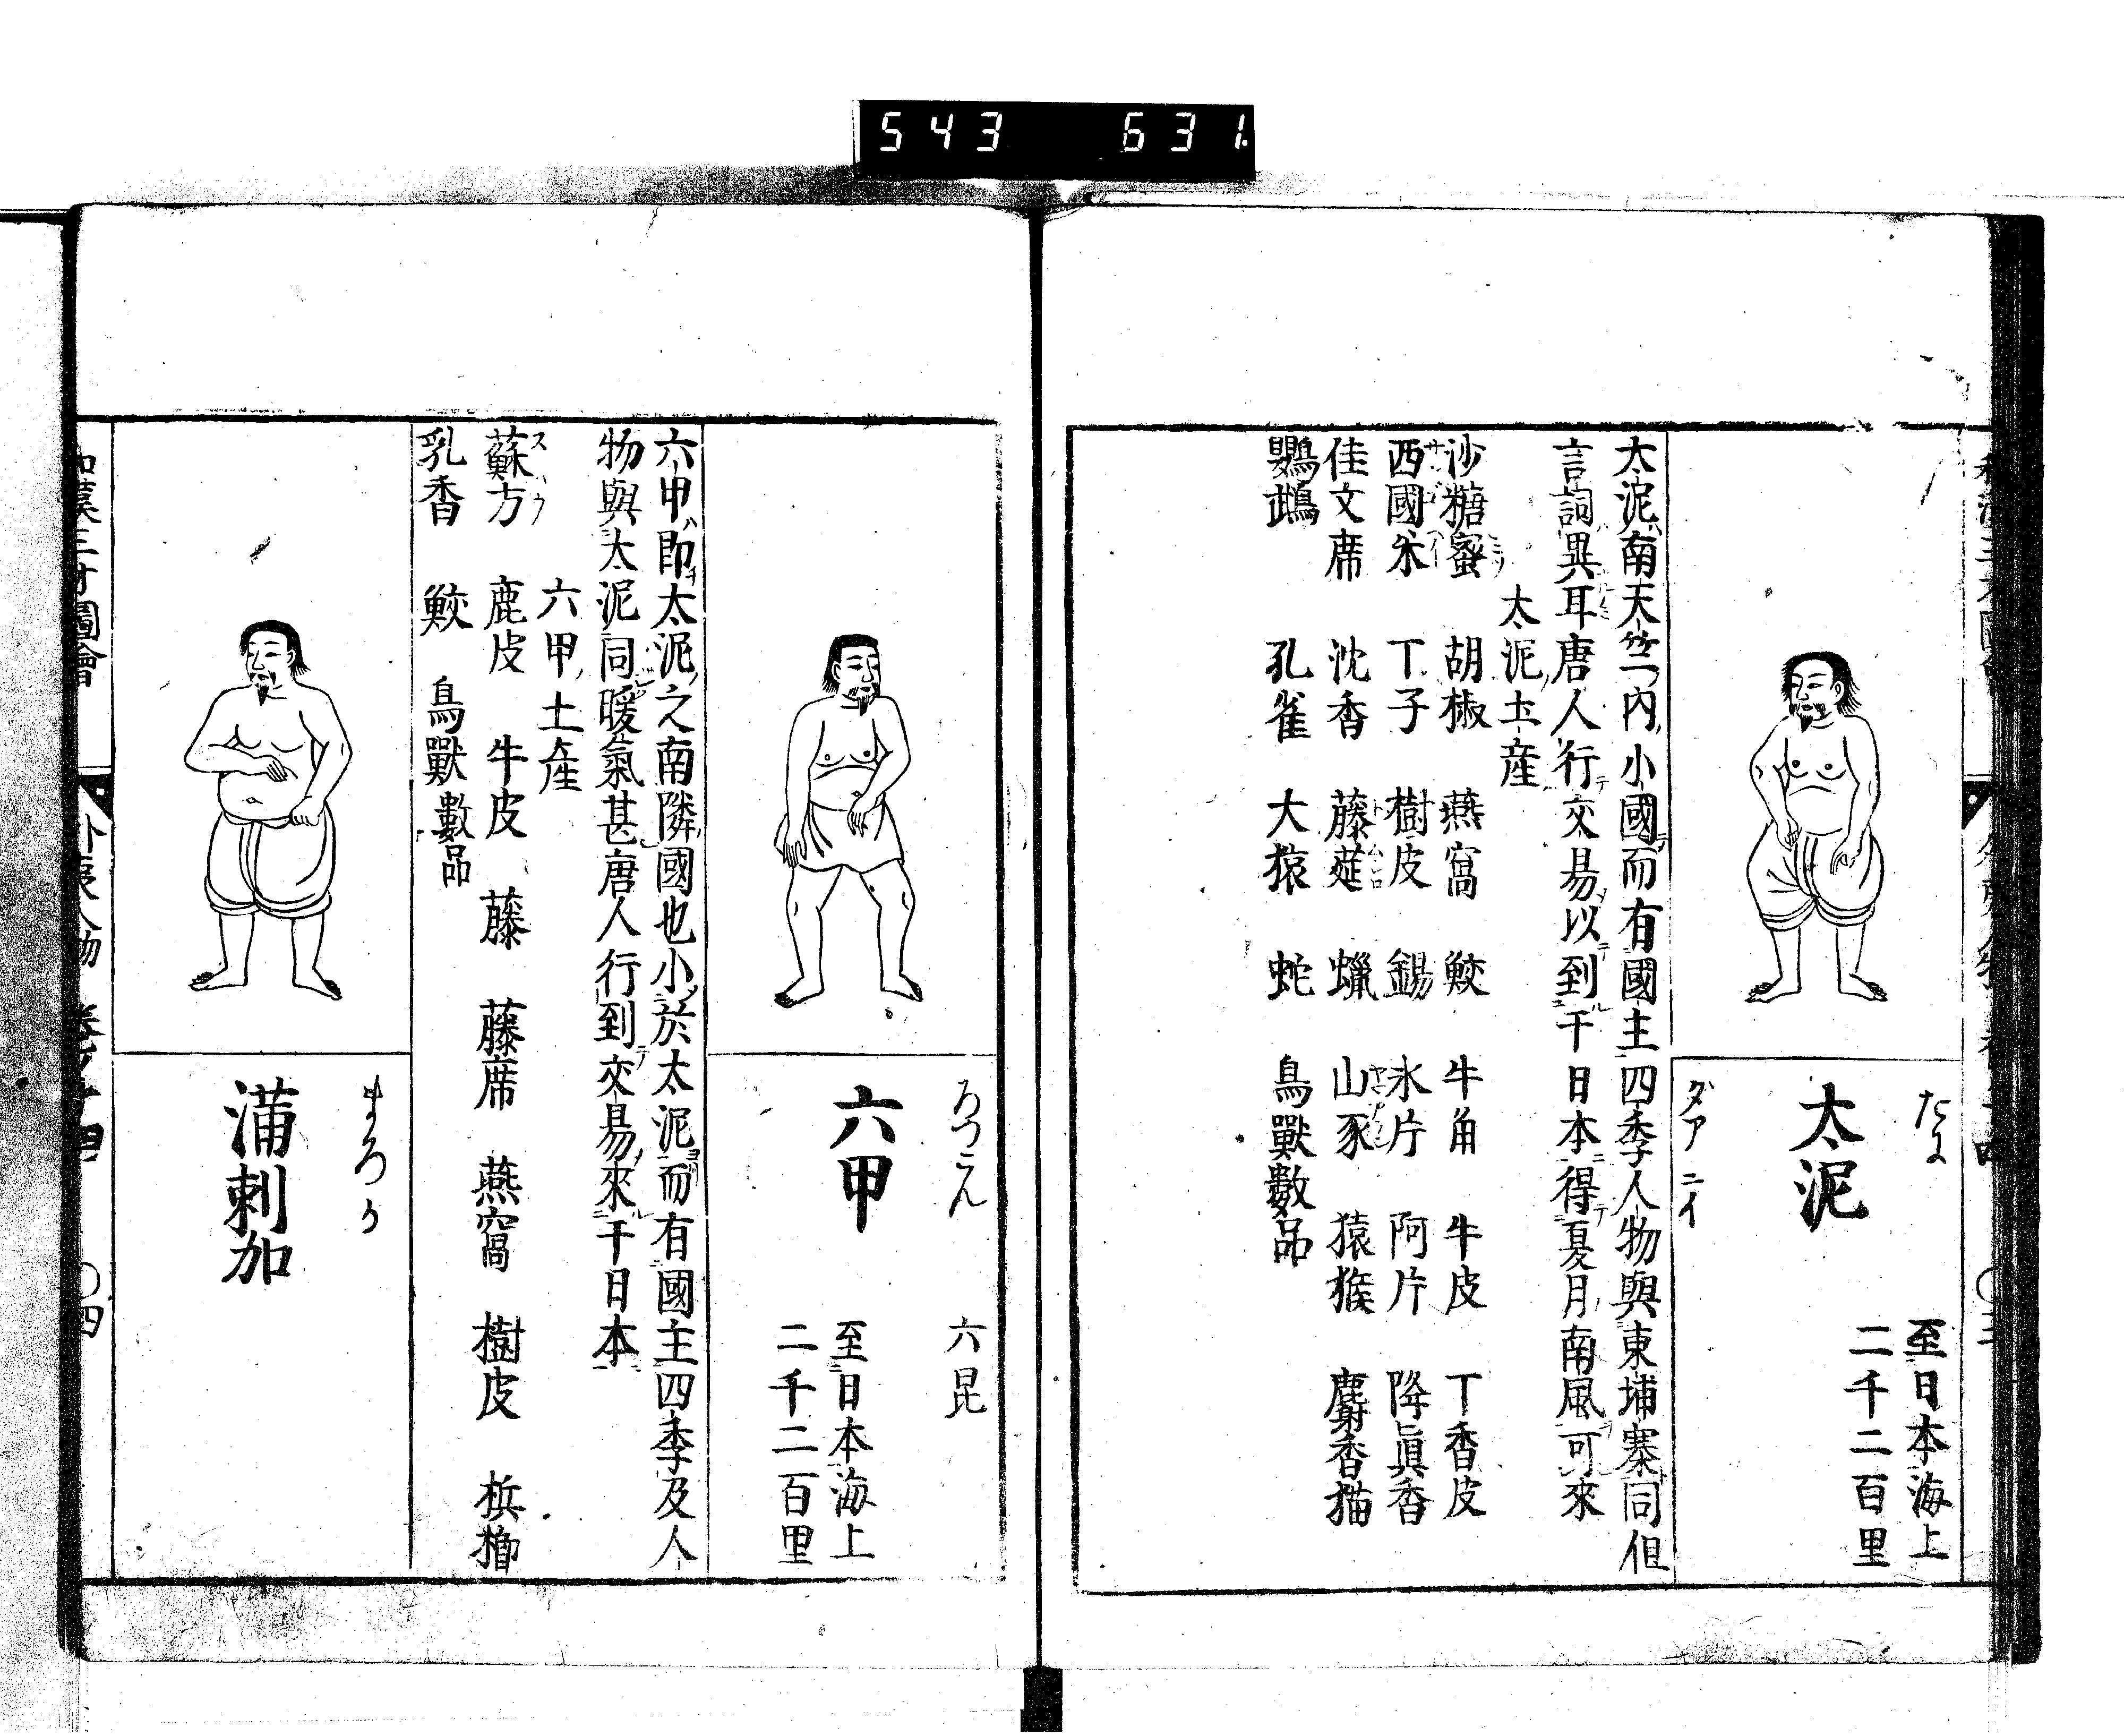 543 631
たに
太泥
ダアニイ
至日本海上
二千二百里
太泥南天竺内小國而有國主四季人物與東埔寨同但
言詞異耳唐人行交易以到干日本得夏月南風可來
太泥土產
沙糖蜜 胡椒 燕窩 鮫 牛角 牛皮 丁香皮
西國米 丁子 樹皮 錫 氷片 阿片 降眞香
佳文席 沈香 藤莚 蠟 山豕 猿猴 麝香猫
鸚鵡 孔雀 大猿 蛇 鳥獸數品
ろつこん
六甲
六昆
至日本海上
二千二百里
六甲即太泥之南隣國也小於太泥而有國主四季及人
物與太泥同暖氣甚唐人行到交易來干日本
六甲土產
蘇方 鹿皮 牛皮 藤 藤席 燕窩 樹皮 檳榔
乳香 鮫 鳥獸數品
まろか
満剌加
和漢三才圖會 外夷人物 卷ノ十四 〇四